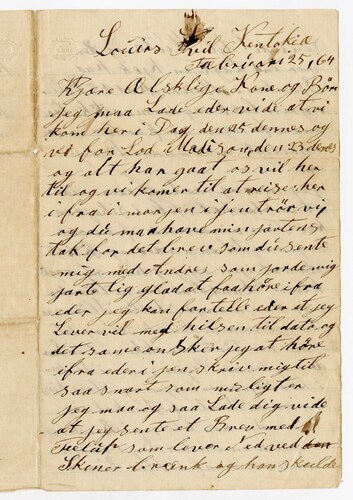 Louirs Vid Kentokie
Fabriuari 25, 64
Kjære Ælsklige Kone og Börn
Jeg maa Lade eder vide at vi
kom her i Dag den 25 dennes og
vi for Lod Madison den 23 denes
og alt har gaat os vil her
til og vi komer til at reise her
ifra i morgen igen trör vi
og du maa have min jartens
tak for det brev som du sente
mig med som jorde mig
jarte lig glad at faa höre ifra
eder jeg kan fortelle eder at jeg
Lever vil med hilsen til dato og
det same onsker jeg at höre
ifra eder igen skriv mig til
saa snart som muligt er
jeg maa og saa Lade dig vide
at jeg sente et Brev med
som lever Ned ved
Skiner og han skulde